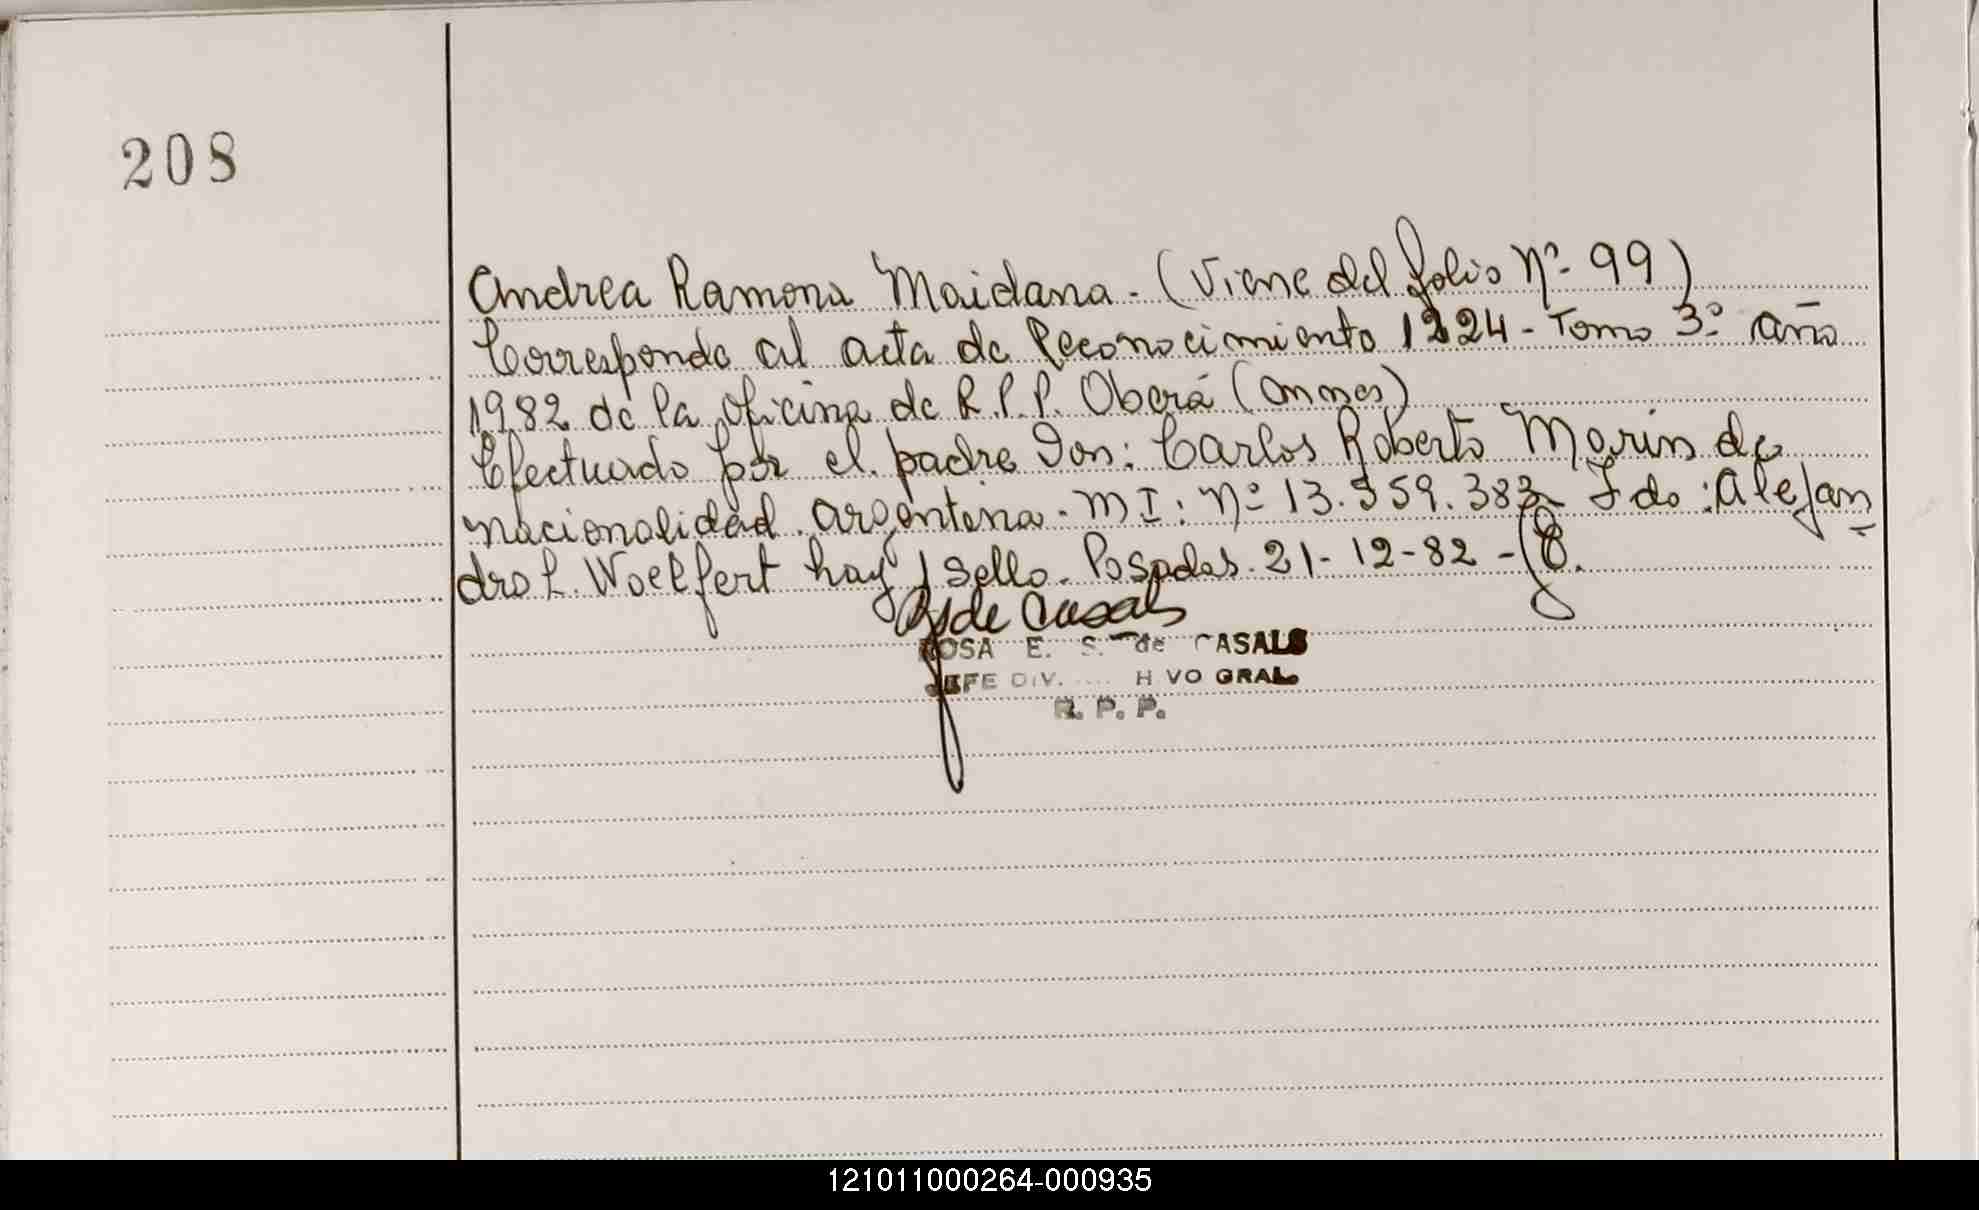 208
Andrea Ramona Maidana. (Viene del folio Nº 99)
Corresponde al acta de Reconocimiento 1224 - Tomo 3º año
1982 de la oficina de R.P.P. Oberá (Mnes)
Efectuado por el padre Don: Carlos Roberto Morin de
nacionalidad argentina. M I: Nº 13.559.383 Fdo: Alejan
dro L. Woelfert hay 1 sello. Posadas. 21-12-82 -
RSde Casals
ROSA E. S. de CASALS
JEFE DIV. HIVO GRAL.
R. P. P.
121011000264-000935